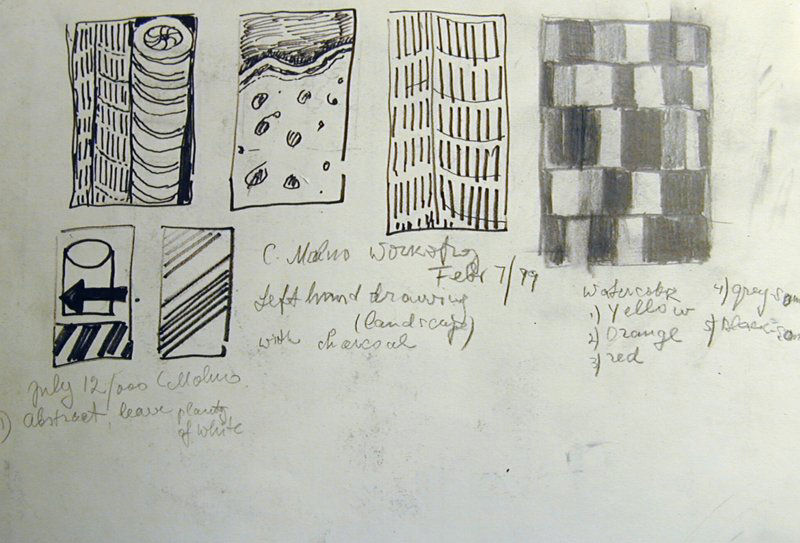 C. Molno Workshop
Febr 7/99
Left hand drawing
(landscape)
with charcoal
Watercolor
1) Yellow
2) Orange
3) red
4) grey som
5) black som
July 12/000 C Molno
1) abstract, leave planty
of white